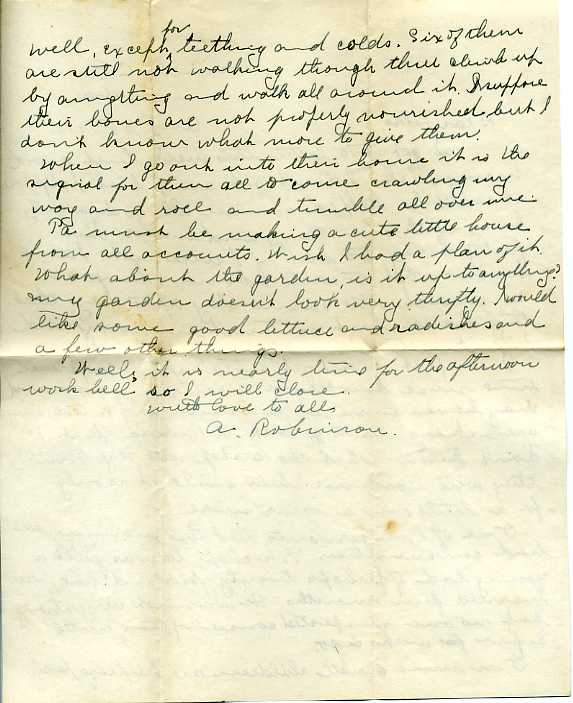 well, except for teething and colds. Six of them
are still not walking though three climb up
by anything and walk all around it. I suppose
their bones are not properly nourished but I
don't know what more to give them.
When I go out into their house it is the
signal for them all to come crawling my
way and roll and tumble all over me.
Pa must be making a cute little house
from all accounts. Wish I had a plan of it.
What about the garden, is it up to anything?
my garden doesn't look very thrifty. I would
like some good lettuce and radishes and
a few other things.
Well, it is nearly time for the afternoon
work bell so I will close.
with love to all
A. Robinson.